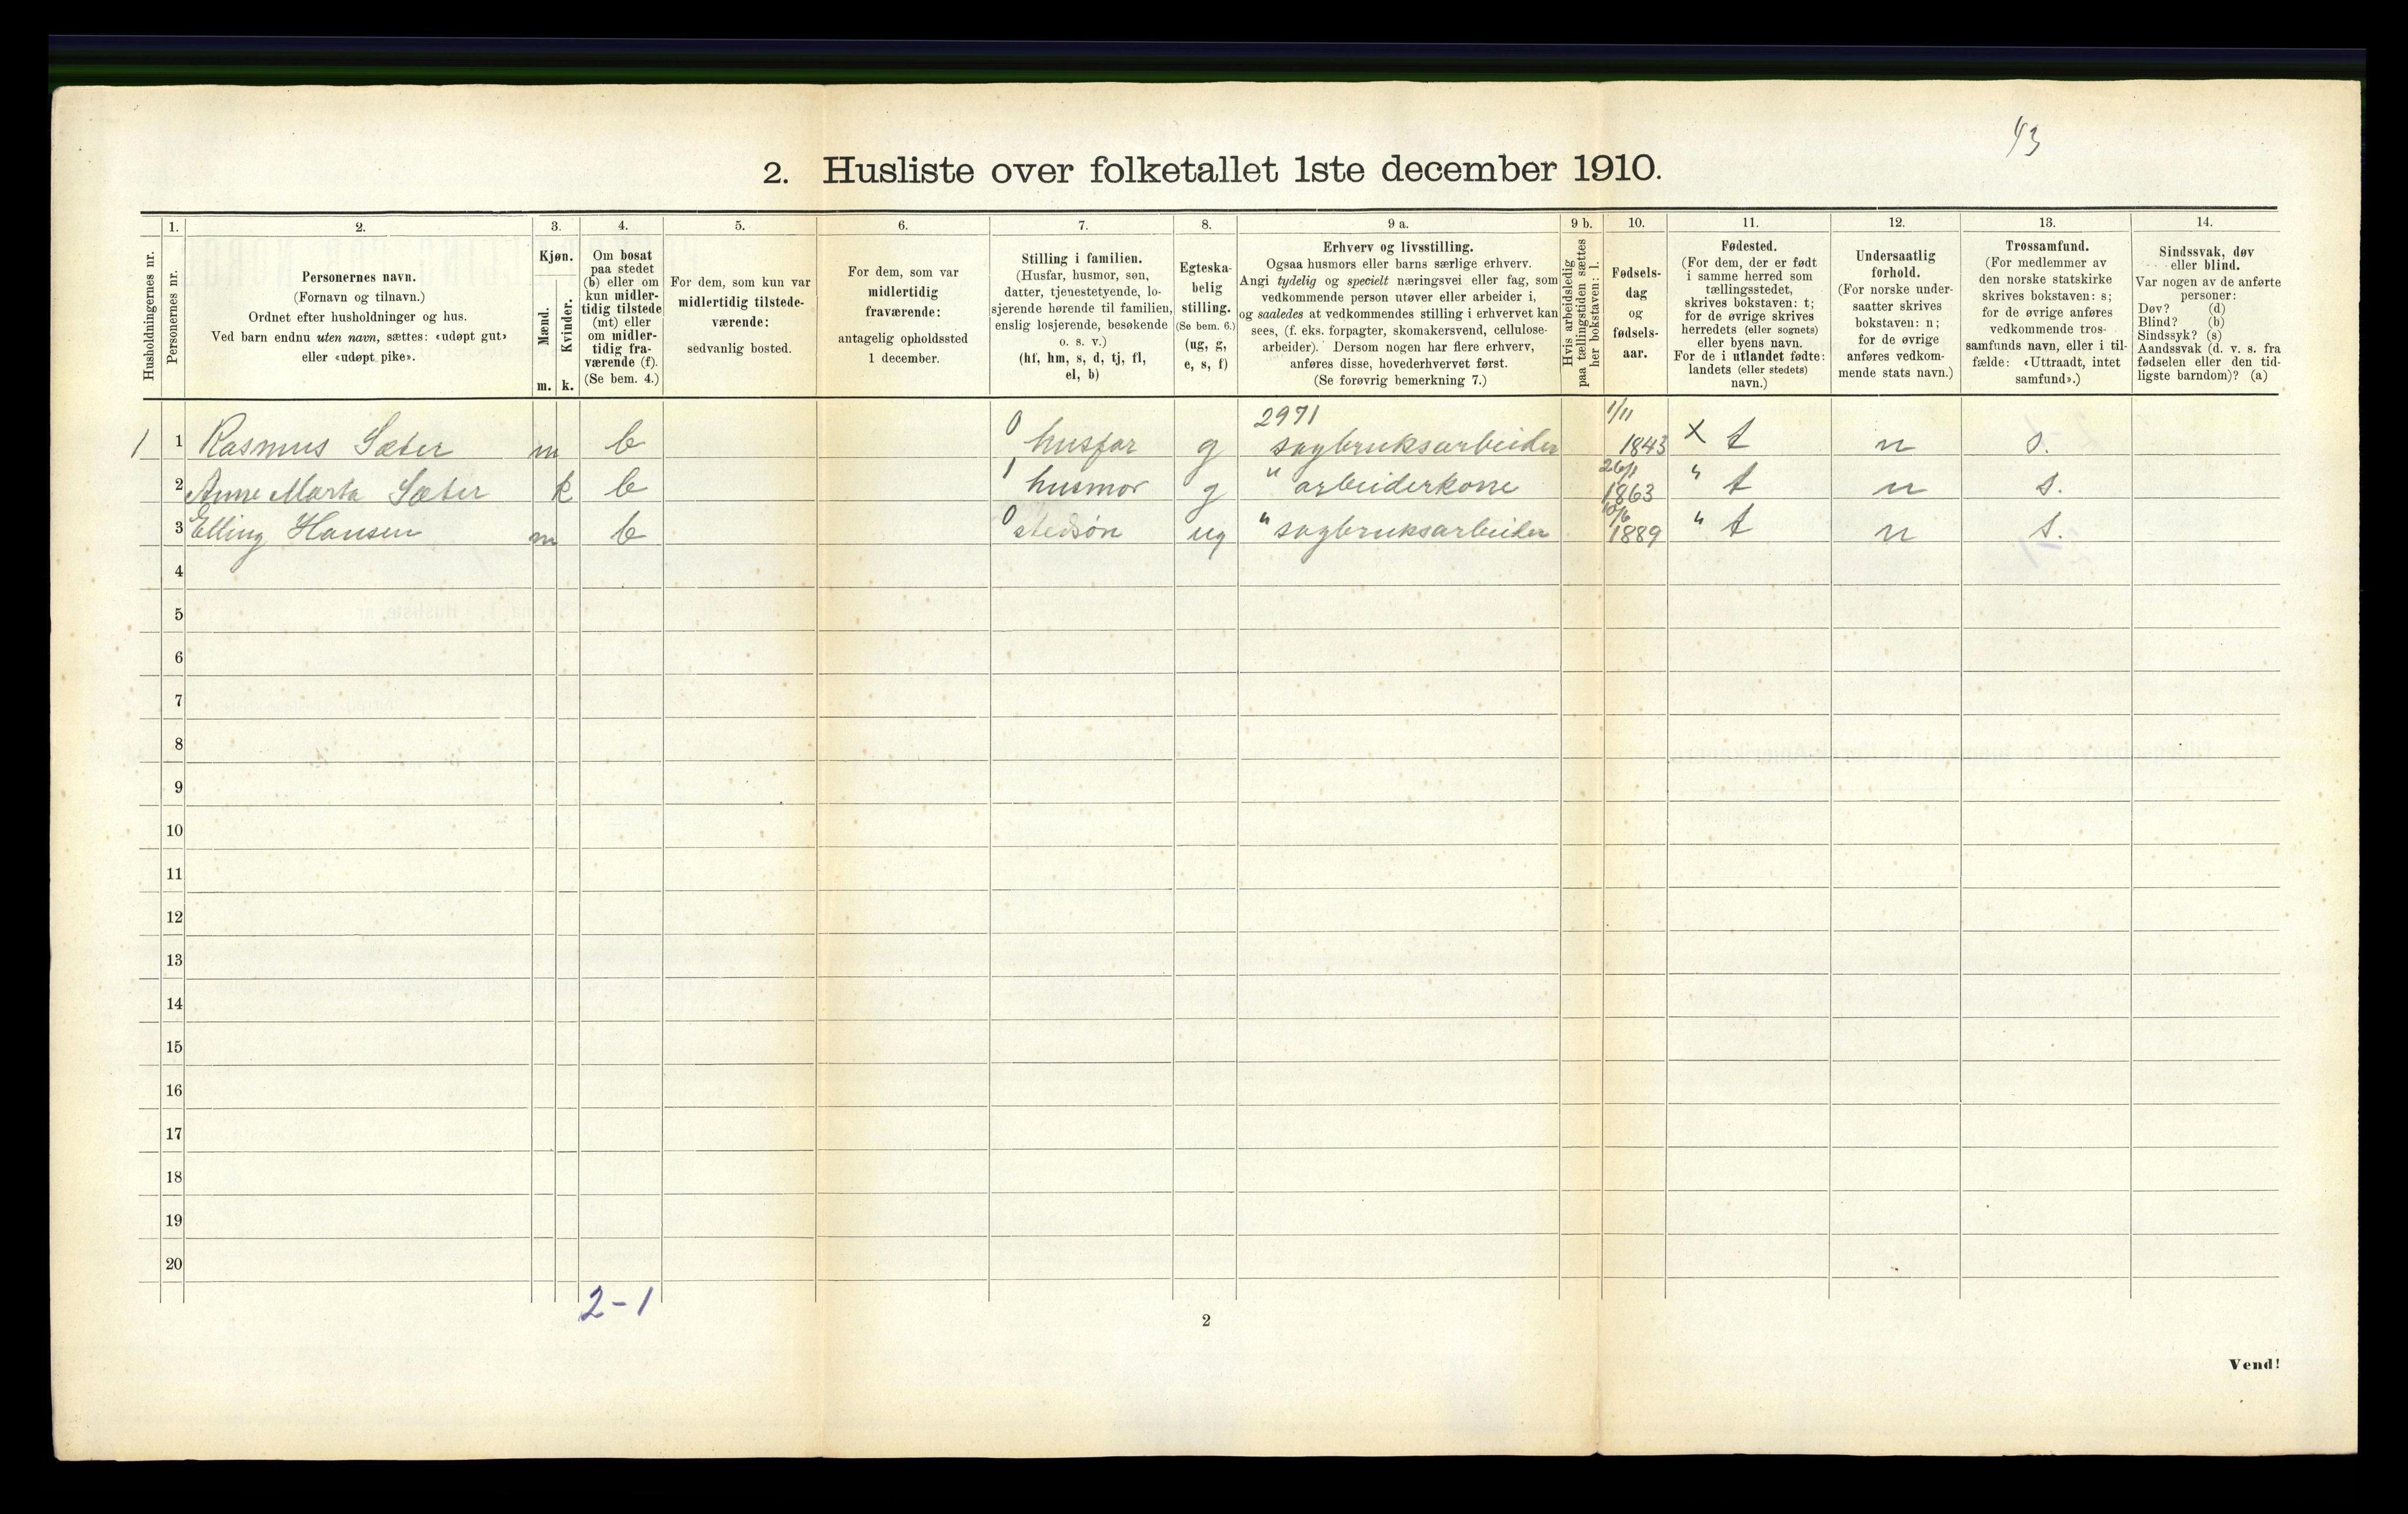 43
2. Husliste over folketallet 1ste december 1910.
Husholdningernes nr.
1.
Personernes nr.
2.
Personernes navn.
(Fornavn og tilnavn.)
Ordnet efter husholdninger og hus.
Ved barn endnu uten navn, sættes: «udøpt gut»
eller «udøpt pike».
3.
Kjøn.
Mænd.
m.
Kvinder.
k.
4.
Om bosat
paa stedet
(b) eller om
kun midler-
tidig tilstede
(mt) eller
om midler-
tidig fra-
værende (f).
(Se bem. 4.)
5.
For dem, som kun var
midlertidig tilstede-
værende:
sedvanlig bosted.
6.
For dem, som var
midlertidig
fraværende:
antagelig opholdssted
1 december.
7.
Stilling i familien.
(Husfar, husmor, søn,
datter, tjenestetyende, lo-
sjerende hørende til familien,
enslig losjerende, besøkende
o. s. v.)
(hf, hm, s, d, tj, fl,
el, b)
8.
Egteska-
belig
stilling.
(Se bem. 6.)
(ug, g,
e, s, f)
9 a.
Erhverv og livsstilling.
Ogsaa husmors eller barns særlige erhverv.
Angi tydelig og specielt næringsvei eller fag, som
vedkommende person utøver eller arbeider i,
og saaledes at vedkommendes stilling i erhvervet kan
sees, (f. eks. forpagter, skomakersvend, cellulose-
arbeider). Dersom nogen har flere erhverv,
anføres disse, hovederhvervet først.
(Se forøvrig bemerkning 7.)
9 b.
Hvis arbeidsledig
paa tællingstiden sættes
her bokstaven: l.
10.
Fødsels-
dag
og
fødsels-
aar.
11.
Fødested.
(For dem, der er født
i samme herred som
tællingsstedet,
skrives bokstaven: t;
for de øvrige skrives
herredets (eller sognets)
eller byens navn.
For de i utlandet fødte:
landets (eller stedets)
navn.)
12.
Undersaatlig
forhold.
(For norske under-
saatter skrives
bokstaven: n;
for de øvrige
anføres vedkom-
mende stats navn.)
13.
Trossamfund.
(For medlemmer av
den norske statskirke
skrives bokstaven: s;
for de øvrige anføres
vedkommende tros-
samfunds navn, eller i til-
fælde: «Uttraadt, intet
samfund».)
14.
Sindssvak, døv
eller blind.
Var nogen av de anførte
personer:
Døv? (d)
Blind? (b)
Sindssyk? (s)
Aandssvak (d. v. s. fra
fødselen eller den tid-
ligste barndom)? (a)
2971 1/11
1 1 Rasmus Sæter m b 0 husfar g sagbruksarbeider 1843 x t n s.
26/1
2 Anne Marta Sæter k b 1 husmor g " arbeiderkone 1863 " t n s.
10/6
3 Elling Hansen m b 0 stedsøn ug " sagbruksarbeider 1889 " t n s.
4
5
6
7
8
9
10
11
12
13
14
15
16
17
18
19
20
2-1
2
Vend!